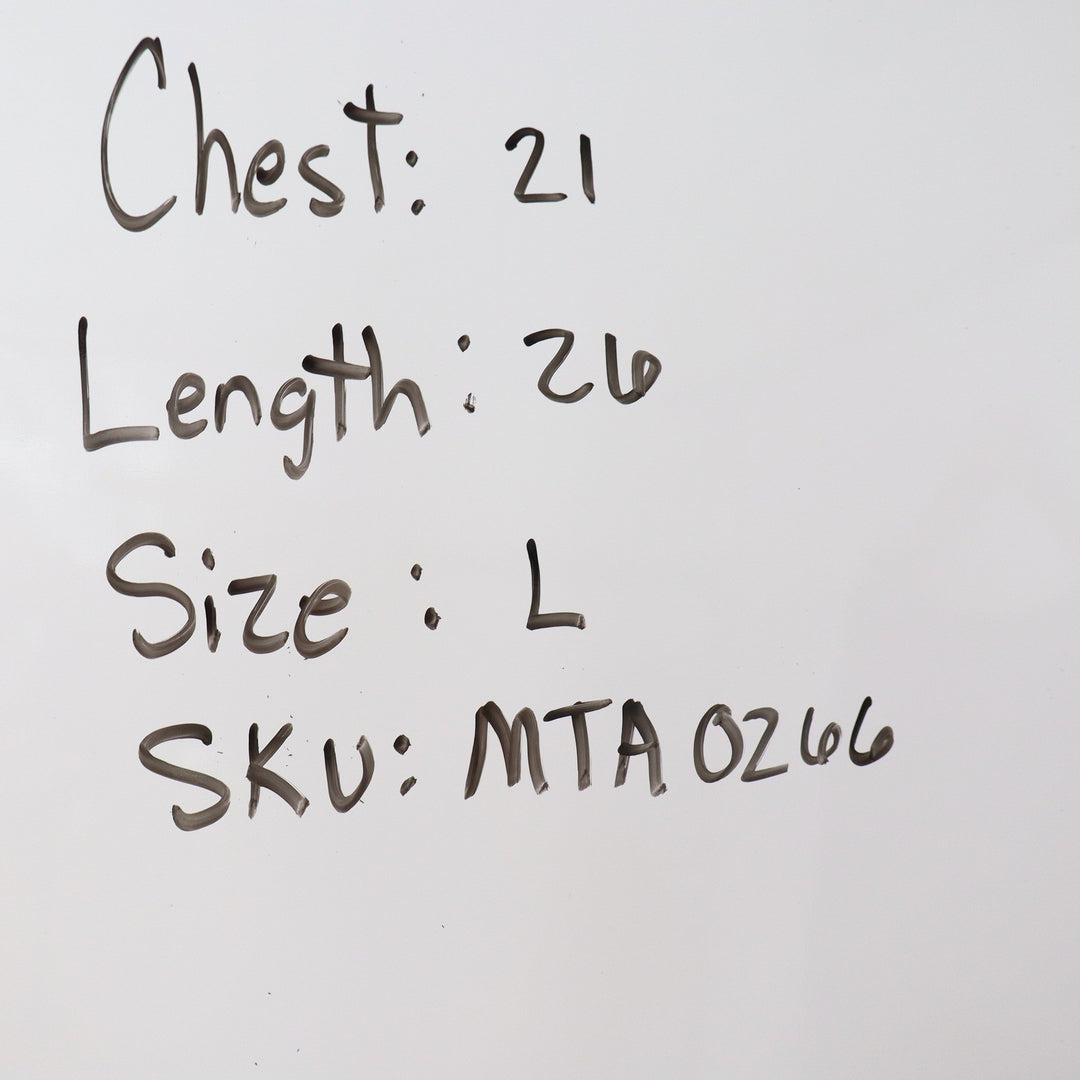 Chest: 21
Length: 26
Size: L
SKU: MTA0266